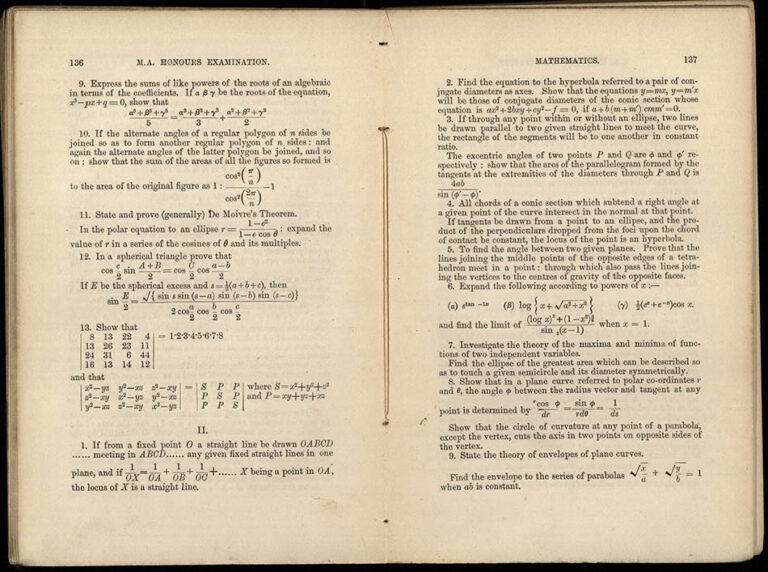 136 M.A. HONOURS EXAMINATION.
9. Express the sums of like powers of the roots of an algebraic
in terms of the coefficients. If α β γ be the roots of the equation,
x³−px+q=0, show that
(α⁵+β⁵+γ⁵)/5 = (α³+β³+γ³)/3 · (α²+β²+γ²)/2
10. If the alternate angles of a regular polygon of n sides be
joined so as to form another regular polygon of n sides: and
again the alternate angles of the latter polygon be joined, and so
on: show that the sum of the areas of all the figures so formed is
to the area of the original figure as 1 : cos²(π/n)/cos²(2π/n) −1
11. State and prove (generally) De Moivre's Theorem.
In the polar equation to an ellipse r = (1−e²)/(1−e cos θ) : expand the
value of r in a series of the cosines of θ and its multiples.
12. In a spherical triangle prove that
cos c/2 sin (A+B)/2 = cos C/2 cos (a−b)/2
If E be the spherical excess and s=½(a+b+c), then
sin E/2 = √{sin s sin (s−a) sin (s−b) sin (s−c)} / (2 cos a/2 cos b/2 cos c/2)
13. Show that
| 8 13 22 4 | = 1·2·3·4·5·6·7·8
| 13 26 23 11 |
| 24 31 6 44 |
| 16 13 14 12 |
and that
| x²−yz y²−xz z²−xy | = | S P P | where S=x²+y²+z²
| z²−xy x²−yz y²−xz | | P S P | and P=xy+yz+xz
| y²−xz z²−xy x²−yz | | P P S |
II.
1. If from a fixed point O a straight line be drawn OABCD
...... meeting in ABCD...... any given fixed straight lines in one
plane, and if 1/OX = 1/OA + 1/OB + 1/OC +...... X being a point in OA,
the locus of X is a straight line.
MATHEMATICS. 137
2. Find the equation to the hyperbola referred to a pair of con-
jugate diameters as axes. Show that the equations y=mx, y=m'x
will be those of conjugate diameters of the conic section whose
equation is ax²+2bxy+cy²−f=0, if a+b(m+m') cmm'=0.
3. If through any point within or without an ellipse, two lines
be drawn parallel to two given straight lines to meet the curve,
the rectangle of the segments will be to one another in constant
ratio.
The excentric angles of two points P and Q are φ and φ' re-
spectively: show that the arcs of the parallelogram formed by the
tangents at the extremities of the diameters through P and Q is
4ab/sin (φ'−φ).
4. All chords of a conic section which subtend a right angle at
a given point of the curve intersect in the normal at that point.
If tangents be drawn from a point to an ellipse, and the pro-
duct of the perpendiculars dropped from the foci upon the chord
of contact be constant, the locus of the point is an hyperbola.
5. To find the angle between two given planes. Prove that the
lines joining the middle points of the opposite edges of a tetra-
hedron meet in a point: through which also pass the lines join-
ing the vertices to the centres of gravity of the opposite faces.
6. Expand the following according to powers of x :—
(α) e^(tan −1x) (β) log {x+√(a²+x²)} (γ) ½(eˣ+e⁻ˣ)cos x.
and find the limit of ((log x)²+(1−x²)⁴)/(sin ₄(x−1)) when x = 1.
7. Investigate the theory of the maxima and minima of func-
tions of two independent variables.
Find the ellipse of the greatest area which can be described so
as to touch a given semicircle and its diameter symmetrically.
8. Show that in a plane curve referred to polar co-ordinates r
and θ, the angle φ between the radius vector and tangent at any
point is determined by cos φ/dr = sin φ/rdθ = 1/ds
Show that the circle of curvature at any point of a parabola,
except the vertex, cuts the axis in two points on opposite sides of
the vertex.
9. State the theory of envelopes of plane curves.
Find the envelope to the series of parabolas √(x/a) + √(y/b) = 1
when ab is constant.